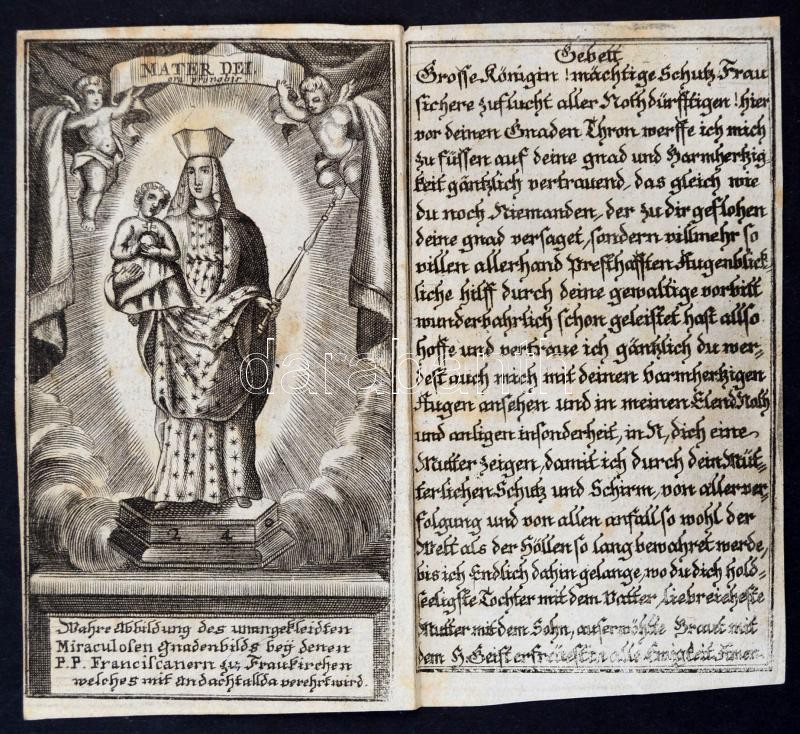 MATER DEI.
ora pro nobis
2 4
Wahre Abbildung des unangekleidten
Miraculosen Gnadenbilds beÿ denen
P.P. Franciscanern zu Fraukirchen
welches mit andacht allda verehrt wird.
Gebett
Grosse Königin! mächtige Schutz Frau
sichere zuflucht aller Nothdürfftigen! hier
vor deinen Gnaden Thron werffe ich mich
zu füssen auf deine gnad und Barmhertzig
keit gäntzlich vertrauend, das gleich wie
du noch Niemanden, der zu dir geflohen
deine gnad versaget, sondern villmehr so
villen allerhand Presthafften Augenblick-
liche hilff durch deine gewaltige vorbitt
wunderbahrlich schon geleistet hast allso
hoffe und vertraue ich gäntzlich du wer-
dest auch mich mit deinen barmhertzigen
Augen ansehen und in meinen Elend Noth
und anligen insonderheit, in N, dich eine
Mutter zeigen, damit ich durch dein Müt-
terlichen Schutz und Schirm, von aller ver-
folgung und von allen anfall so wohl der
Welt als der Höllen so lang bewahret werde,
bis ich Endlich dahin gelange, wo du dich hold-
seeligste Tochter mit dem Vatter, liebreicheste
Mutter mit dem Sohn, auserwöhlte Braut mit
dem H. Geist erfreuest in alle Ewigkeit Amen.
darabanth